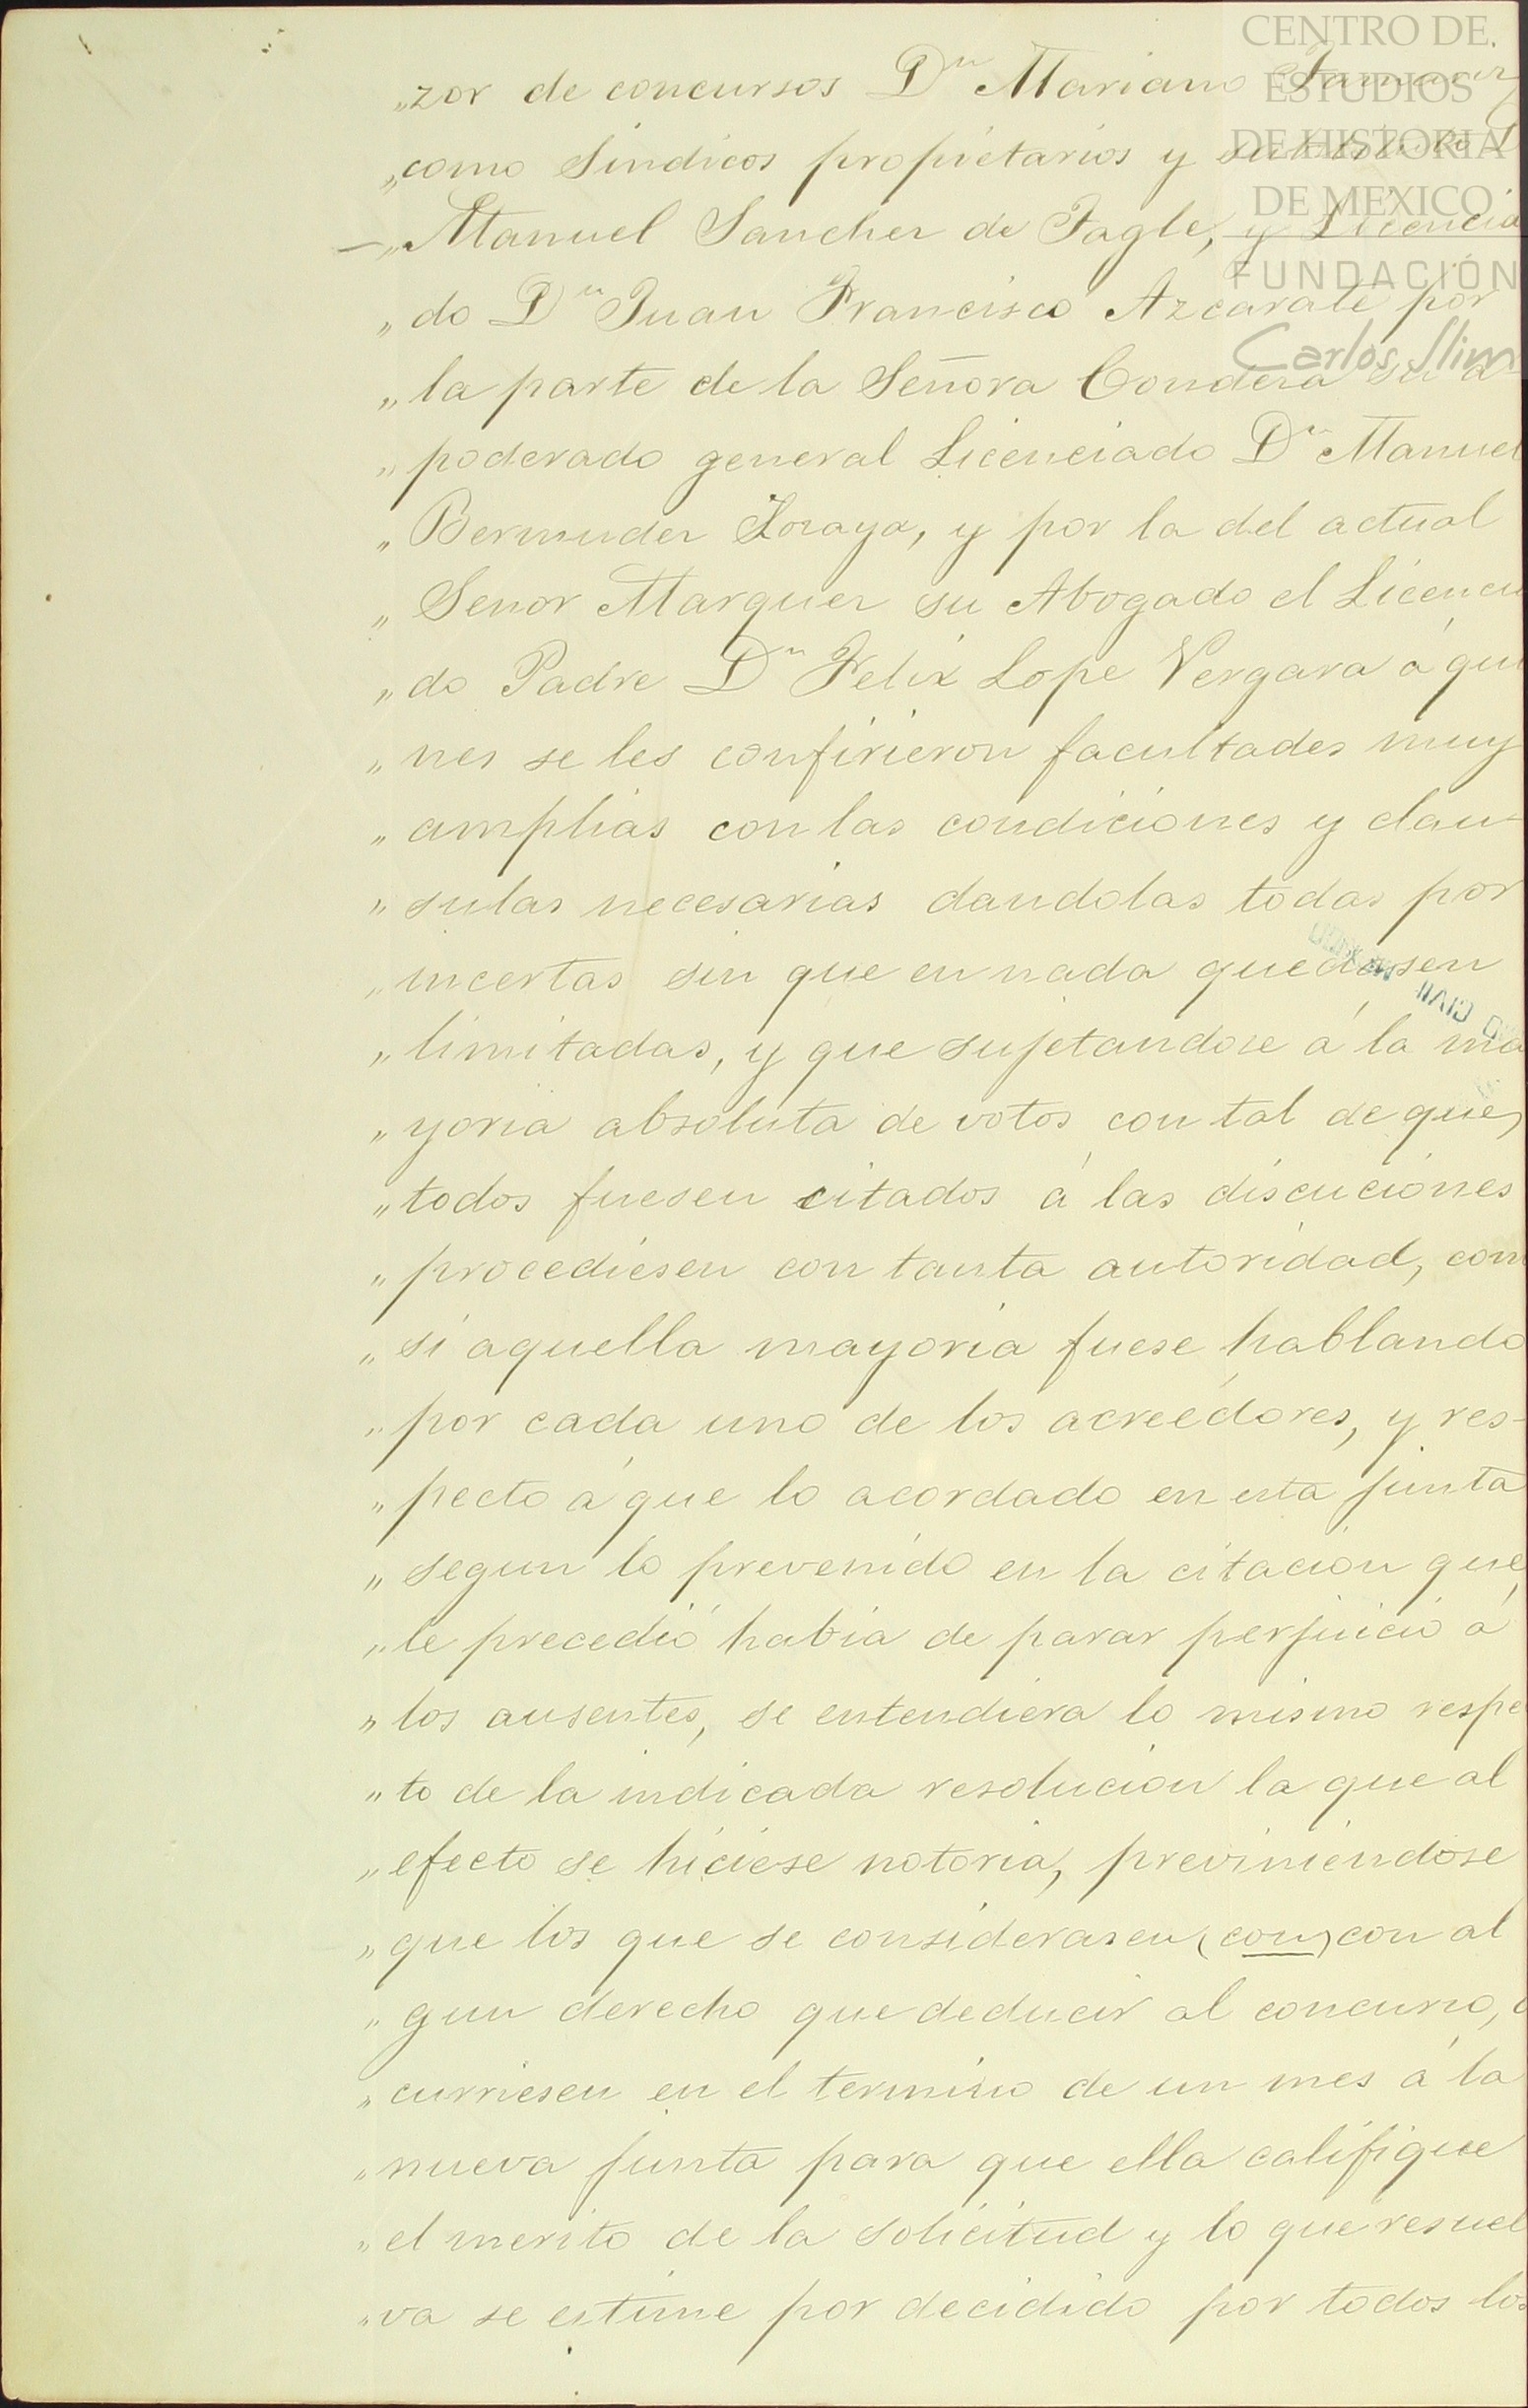 CENTRO DE
ESTUDIOS
DE HISTORIA
DE MEXICO
FUNDACIÓN
Carlos Slim
„zor de concursos Dn Mariano
„como Sindicos propietarios y
—„Manuel Sanchez de Tagle, y Licencia
„do Dn Juan Francisco Azcarate por
„la parte de la Señora Condesa su a-
„poderado general Licenciado Dn Manuel
„Bermudez Zozaya, y por la del actual
„Senor Marquez su Abogado el Licencia
„do Padre Dn Felix Lope Vergara á quie
„nes se les confirieron facultades muy
„amplias con las condiciones y clau-
„sulas necesarias dandolas todas por
„incertas sin que en nada quedasen
„limitadas, y que sujetandose á la ma
„yoria absoluta de votos con tal de que,
„todos fuesen citados á las discuciones
„procediesen con tanta autoridad, com
„si aquella mayoria fuese hablando
„por cada uno de los acreédores, y res-
„pecto á que lo acordado en esta junta
„segun lo prevenido en la citacion que,
„le precedió habia de parar perjuicio á
„los ausentes, se entendiera lo mismo respe
„to de la indicada resolucion la que al
„efecto se hiciese notoria, previniendose
„que los que se considerasen (con) con al
„gun derecho que deducir al concurso,
„curriesen en el termino de un mes á la
„nueva junta para que ella califique
„el merito de la solicitud y lo que resuel
„va se estime por decidido por todos los